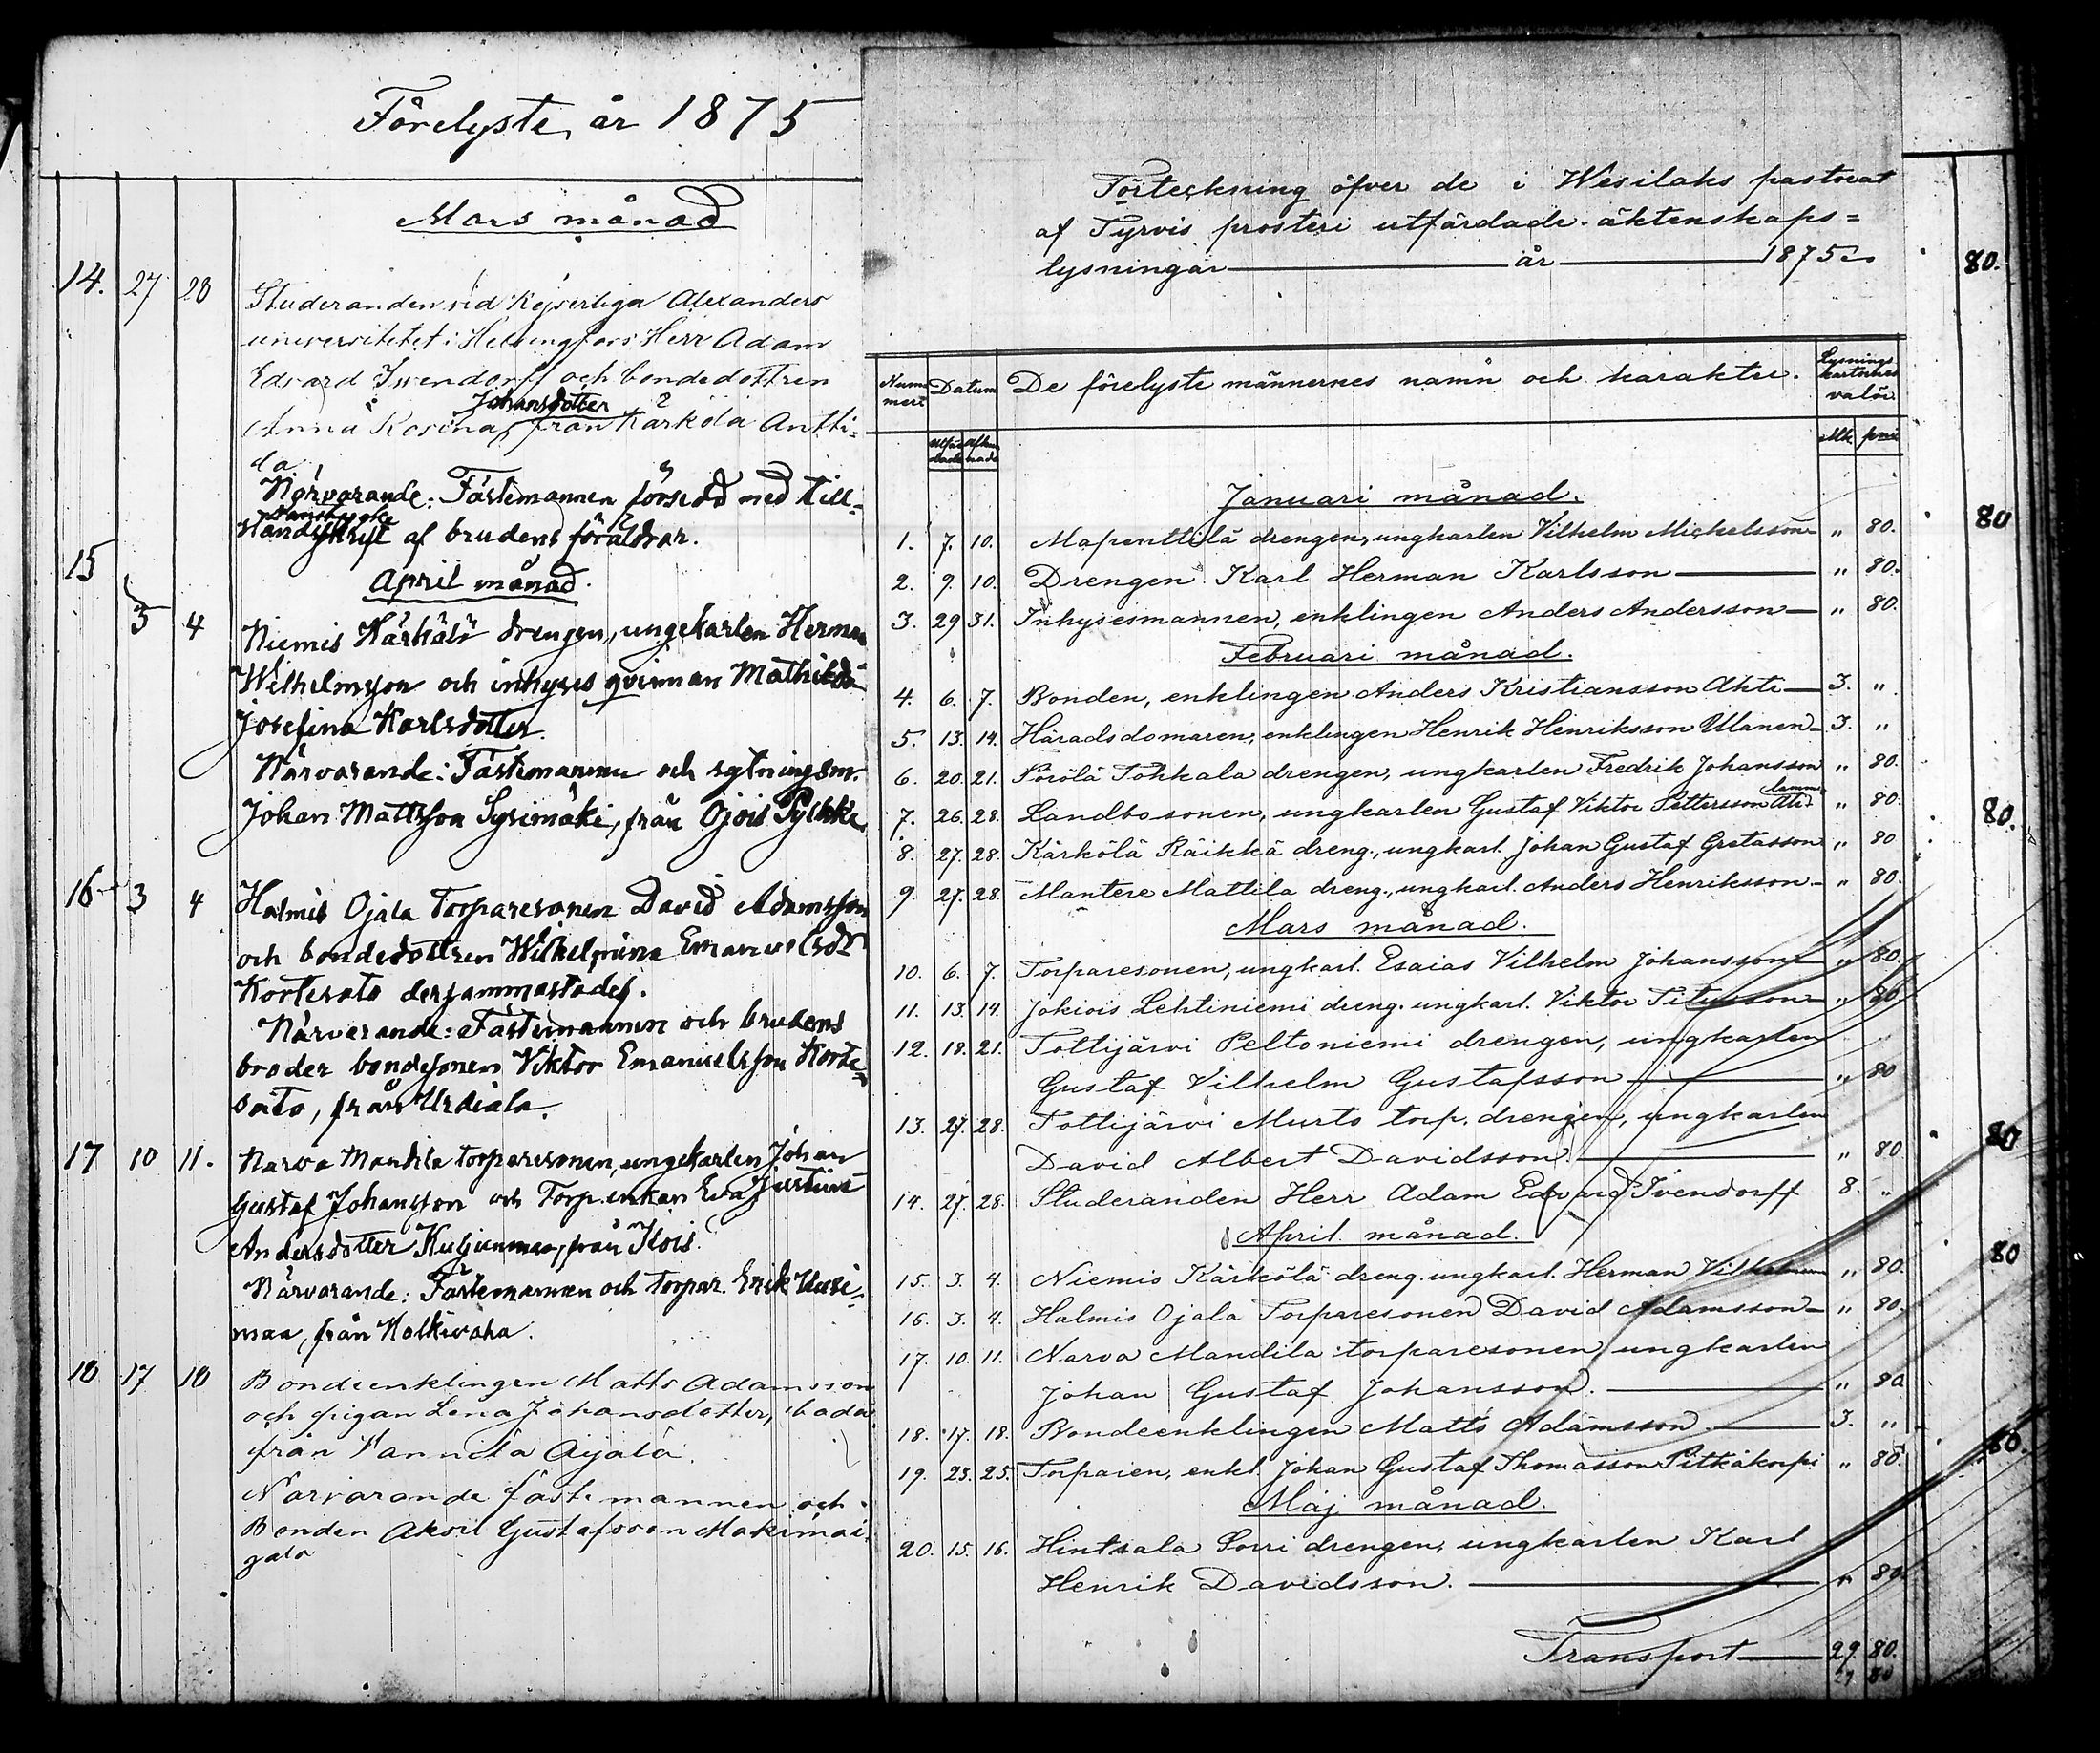 Förelyste, år 1875
Mars månad
14. 27 28 Studeranden vid Kejserliga Alexanders
universitetet i Helsingfors Herr Adam
Edvard Ivendorff och bondedottren
Johansdotter
Anna Rosina, från Kärkölä Antti-
la
Närvarande: Fästemannen försedd med till-
af brudens föräldrar.
April månad.
15 3 4 Niemis Kärkölä drengen, ungekarlen Herman
Wilhelmsson och inhyses qvinnan Mathilda
Josefina Karlsdotter.
Närvarande: Fästemannen och sytningsm.
Johan Mattsson Syrimäki, från Ojois Pyhkke
16 3 4 Halmis Ojala Torparesonen David Adamsson
och bondedottren Wilhelmina Emanuelsdr
Kortesato dersammastädes.
Närvarande: Fästemannen och brudens
broder bondesonen Viktor Emanuelsson Korte-
sato, från Urdiala.
17 10 11. Narva Mandila torparesonen, ungekarlen Johan
Gustaf Johansson och Torp.enkan Eva Justina
Andersdotter från
Närvarande: Fästemannen och torpar. Erik Uusi-
maa, från Kolkivaha.
18 17 18 Bondeenklingen Matts Adamsson
och pigan Lena Johansdotter, båda
från Vannela Äijälä.
Närvarande fästemannen och
Bonden Aksel Gustafsson
Förteckning öfver de i Wesilaks pastorat
af Tyrvis prosteri utfärdade äktenskaps=
lysningar år 1875
Num- mert Datum De förelyste männernes namn och karakter. Lysnings kartornes valör
Utfär- dade Afkun- nade Mk. pni
Januari månad.
1. 7. 10. Mapenttilä drengen, ungkarlen Vilhelm Mickelsson „ 80.
2. 9. 10. Drengen Karl Herman Karlsson „ 80.
3. 29 31. Inhysesmannen, enklingen Anders Andersson „ 80.
Februari månad.
4. 6. 7. Bonden, enklingen Anders Kristiansson Ahti 3. „
5. 13. 14. Häradsdomaren, enklingen Henrik Henriksson Ulanen 3. „
6. 20. 21. Sorölä Tokkala drengen, ungkarlen Fredrik Johansson „ 80.
7. 26. 28. Landbosonen, ungkarlen Gustaf Viktor Pettersson „ 80.
8. 27. 28. Kärkölä Räikkä dreng., ungkarl. Johan Gustaf Gretasson „ 80
9. 27. 28. Mantere Mattila dreng., ungkarl. Anders Henriksson „ 80.
Mars månad.
10. 6. 7. Torparesonen, ungkarl. Esaias Vilhelm Johansson „ 80.
11. 13. 14. Jokiois Lehtiniemi dreng. ungkarl. Viktor Titusson „ 80
12. 18. 21. Tottijärvi Peltoniemi drengen, ungkarlen
Gustaf Vilhelm Gustafsson „ 80
13. 27. 28. Tottijärvi Murto torp. drengen, ungkarlen
David Albert Davidsson. „ 80
14. 27. 28. Studeranden Herr Adam Edvard Ivendorff 8. „
April månad.
15. 3. 4. Niemis Kärkölä dreng. ungkarl. Herman Vilhelmsson „ 80.
16. 3. 4. Halmis Ojala Torparesonen David Adamsson „ 80.
17. 10. 11. Narva Mandila torparesonen, ungkarlen
Johan Gustaf Johansson. „ 80
18. 17. 18. Bondeenklingen Matts Adamsson 3. „
19. 23. 25. Torparen, enkl. Johan Gustaf Thomasson Pitkäkorpi „ 80.
Maj månad.
20. 15. 16. Hintsala Sorri drengen, ungkarlen Karl
Henrik Davidsson. „ 80
Transport 29. 80.
80.
80
80.
80
80
80.